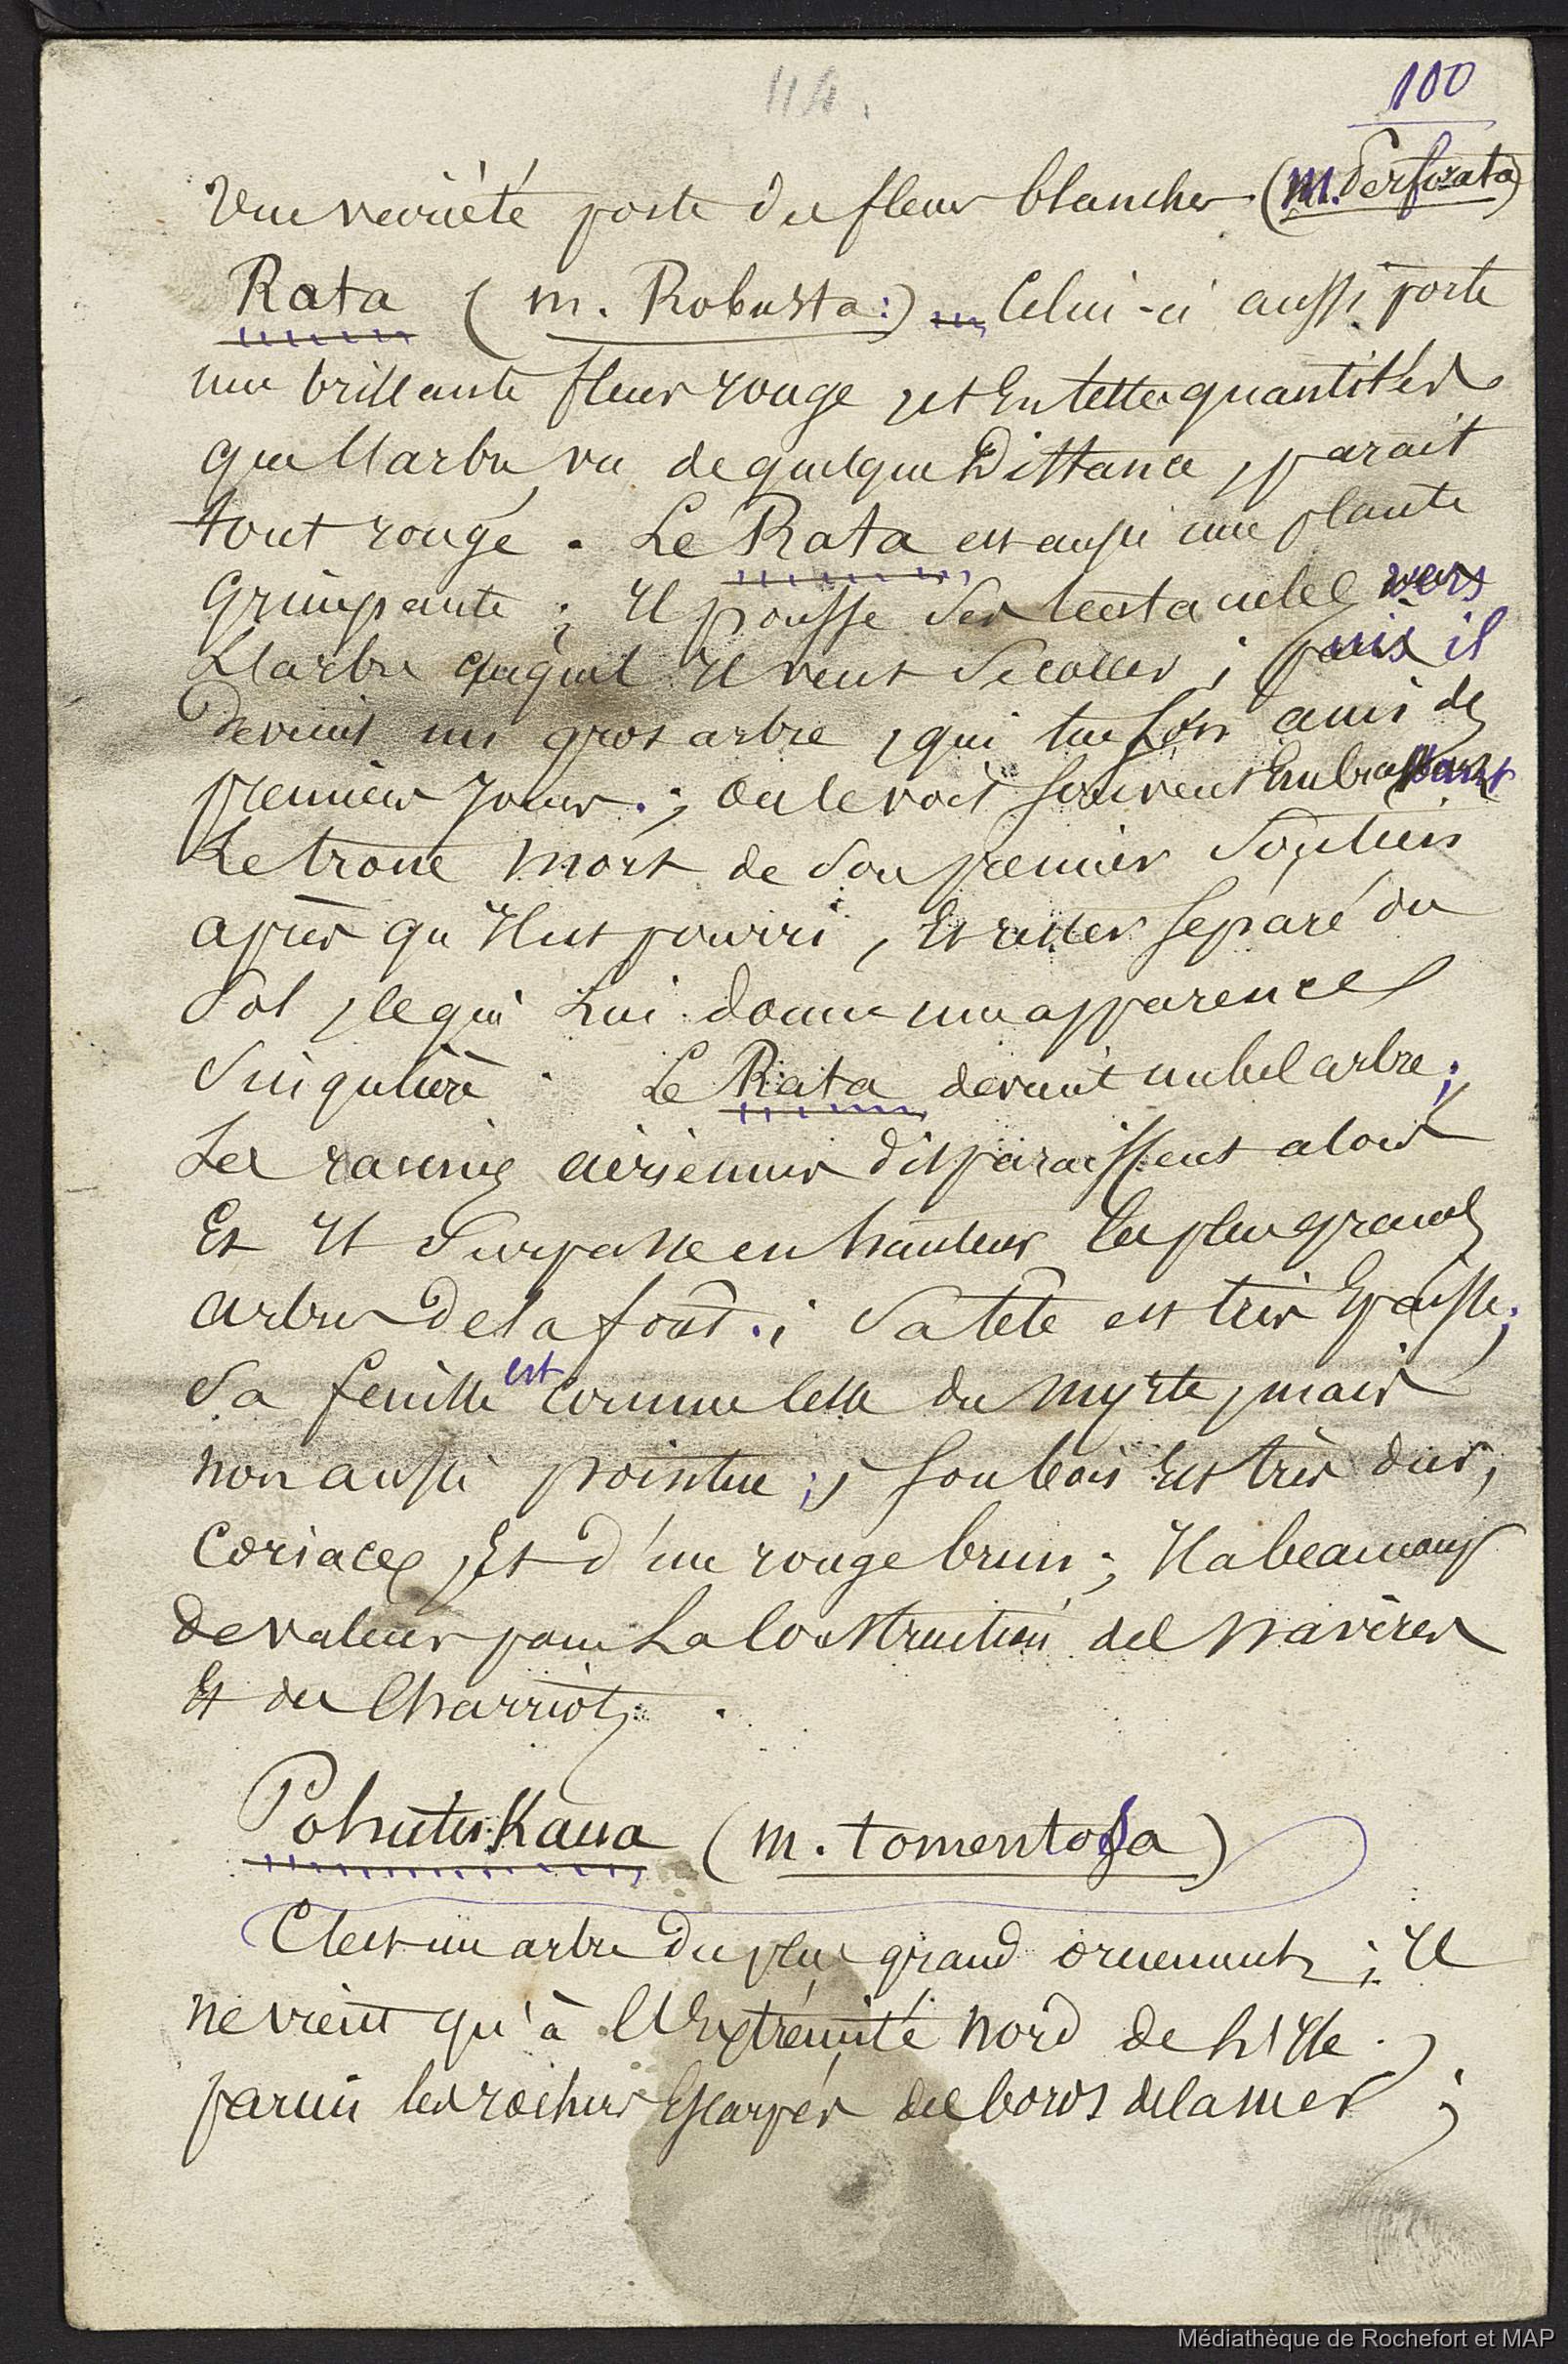 114.
100
Une varièté porte des fleurs blanches (M. Perforata)
Rata (M. Robusta:) Celui-ci aussi porte
une brillante fleur rouge, et En telles quantités
que l'arbre, vu de quelque Distance, parait
tout rouge. Le Rata est aussi une plante
Grimpante; Il pousse ses tentacules vers
L'arbre auquel Il veut se coller; puis il
devient un gros arbre, qui tue son ami des
premiers jours; on le voit souvent Embrassant
Le tronc mort de son premier Soutien
après qu'Il est pourri, Et rester separé du
Sol, ce qui Lui donne une apparence
Singulière. Le Rata devient un bel arbre;
Les racines aériennes disparaissent alors
Et Il Surpasse en hauteur les plus grands
arbres de la forêt; Sa tête est très Epaisse;
Sa feuille est comme celle du Myrte, mais
non aussi pointue; son bois Est très dur,
Coriace, Et d'un rouge brun; Il a beaucoup
de valeur pour La Construction des Navires
Et des Charriots.
Pohutu-Kaua (M. tomentosa)
C'est un arbre du plus grand ornement; Il
ne vient qu'à l'Extrémité Nord de l'Ile
parmi les rochers Escarpés des bords de la mer;
Médiathèque de Rochefort et MAP